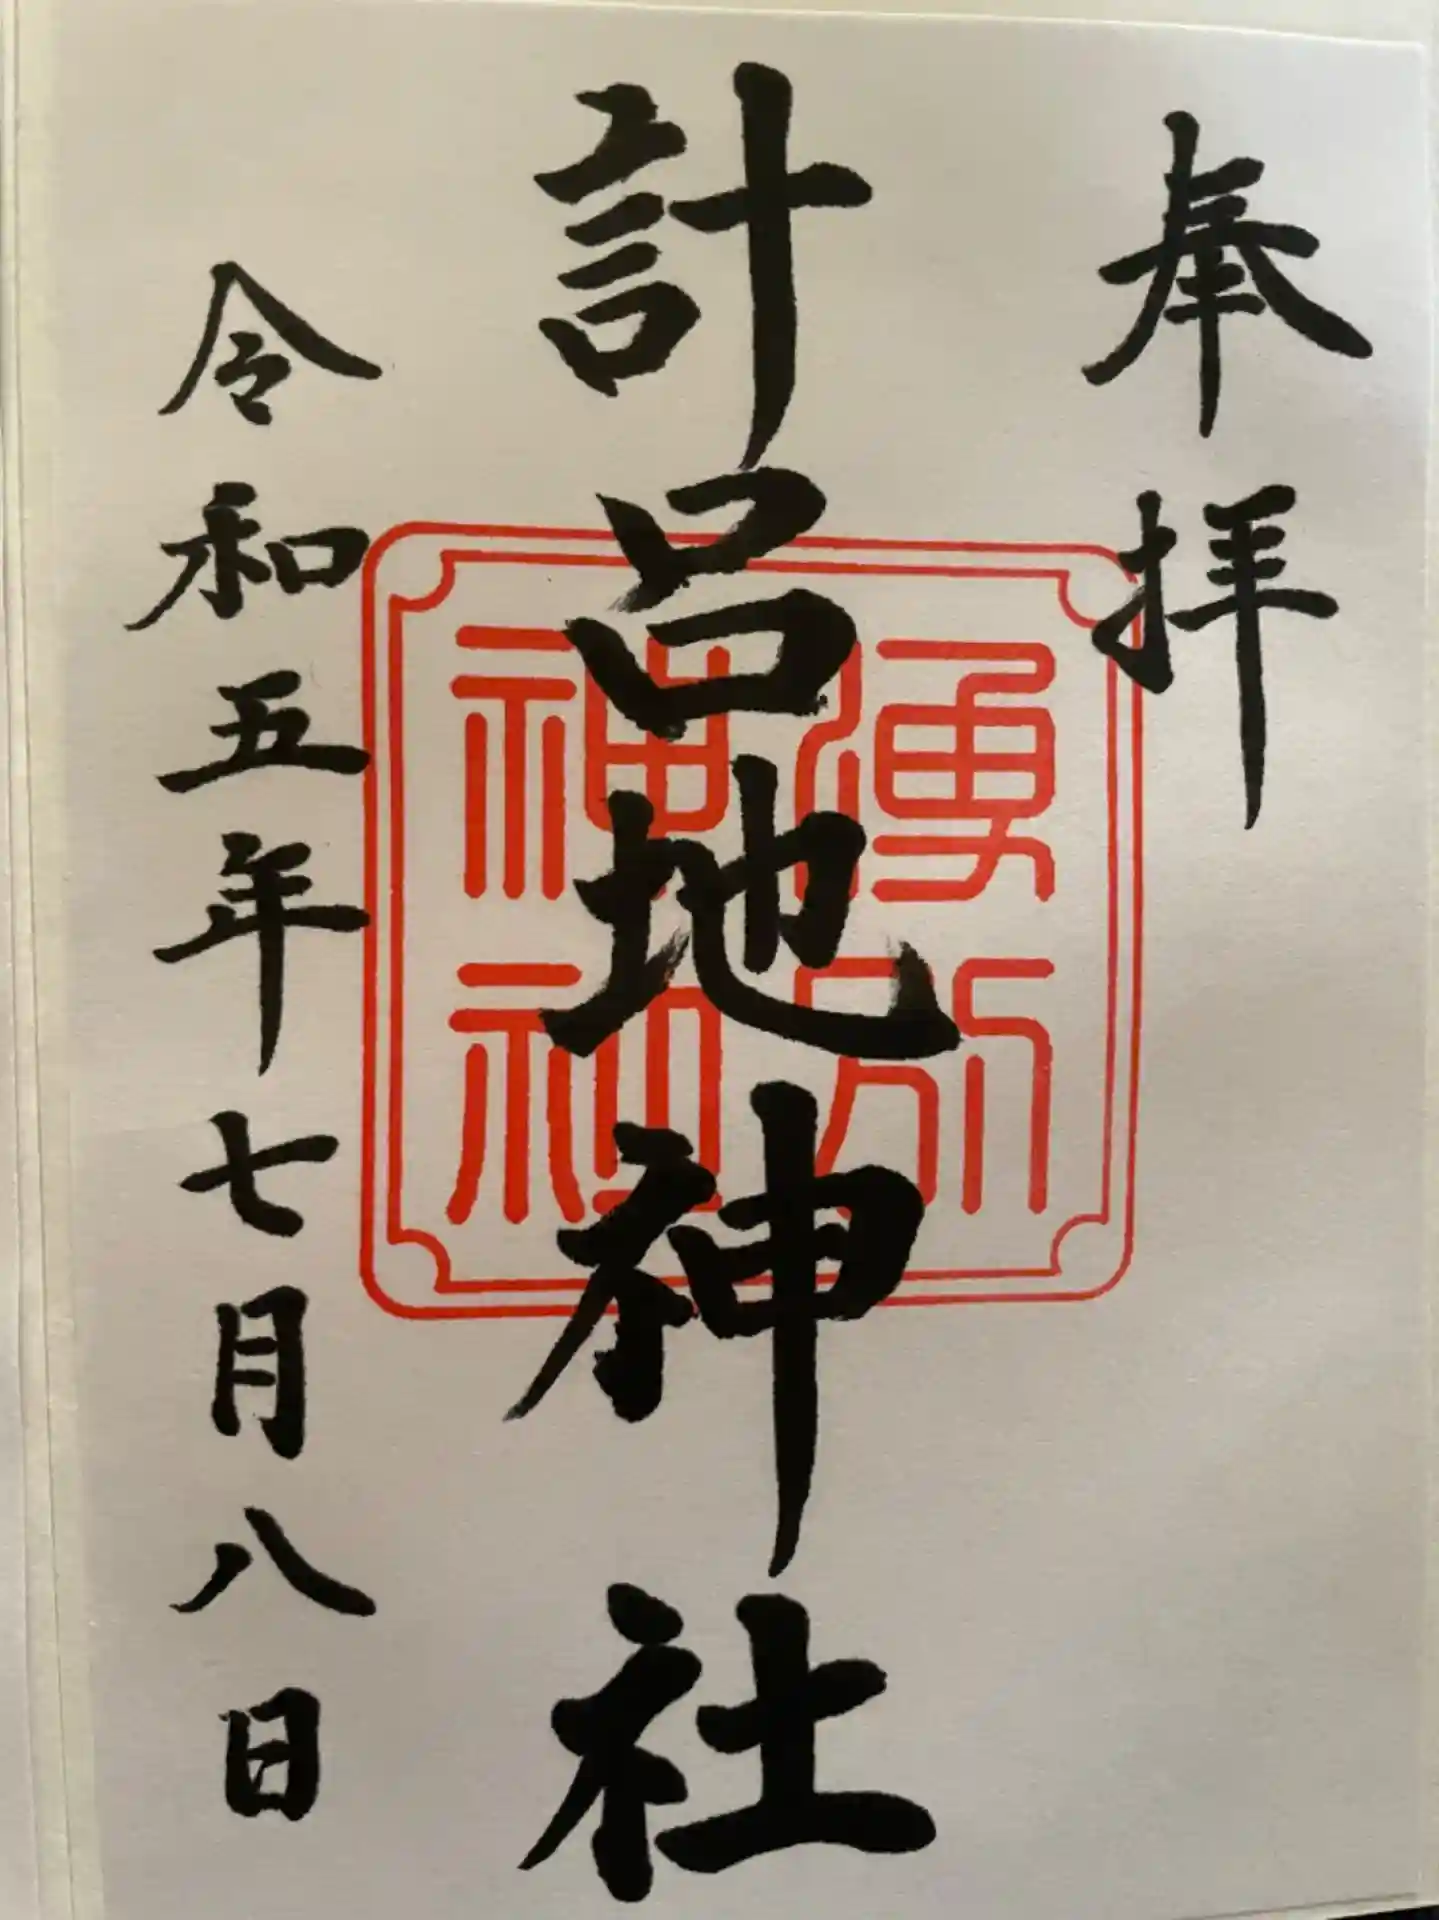 奉拝
計呂地神社
湧別神社
令和五年七月八日